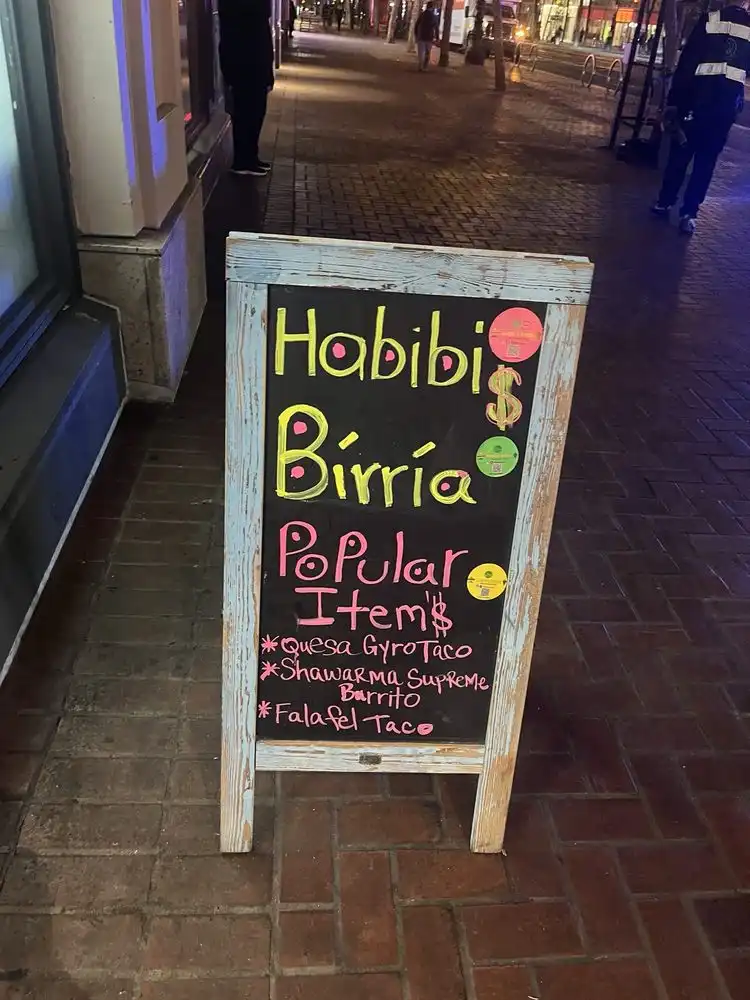 Habibi
$
Bírría
PoPular
Item'$
*Quesa Gyro Taco
*Shawarma Supreme
Burrito
*Falafel Taco